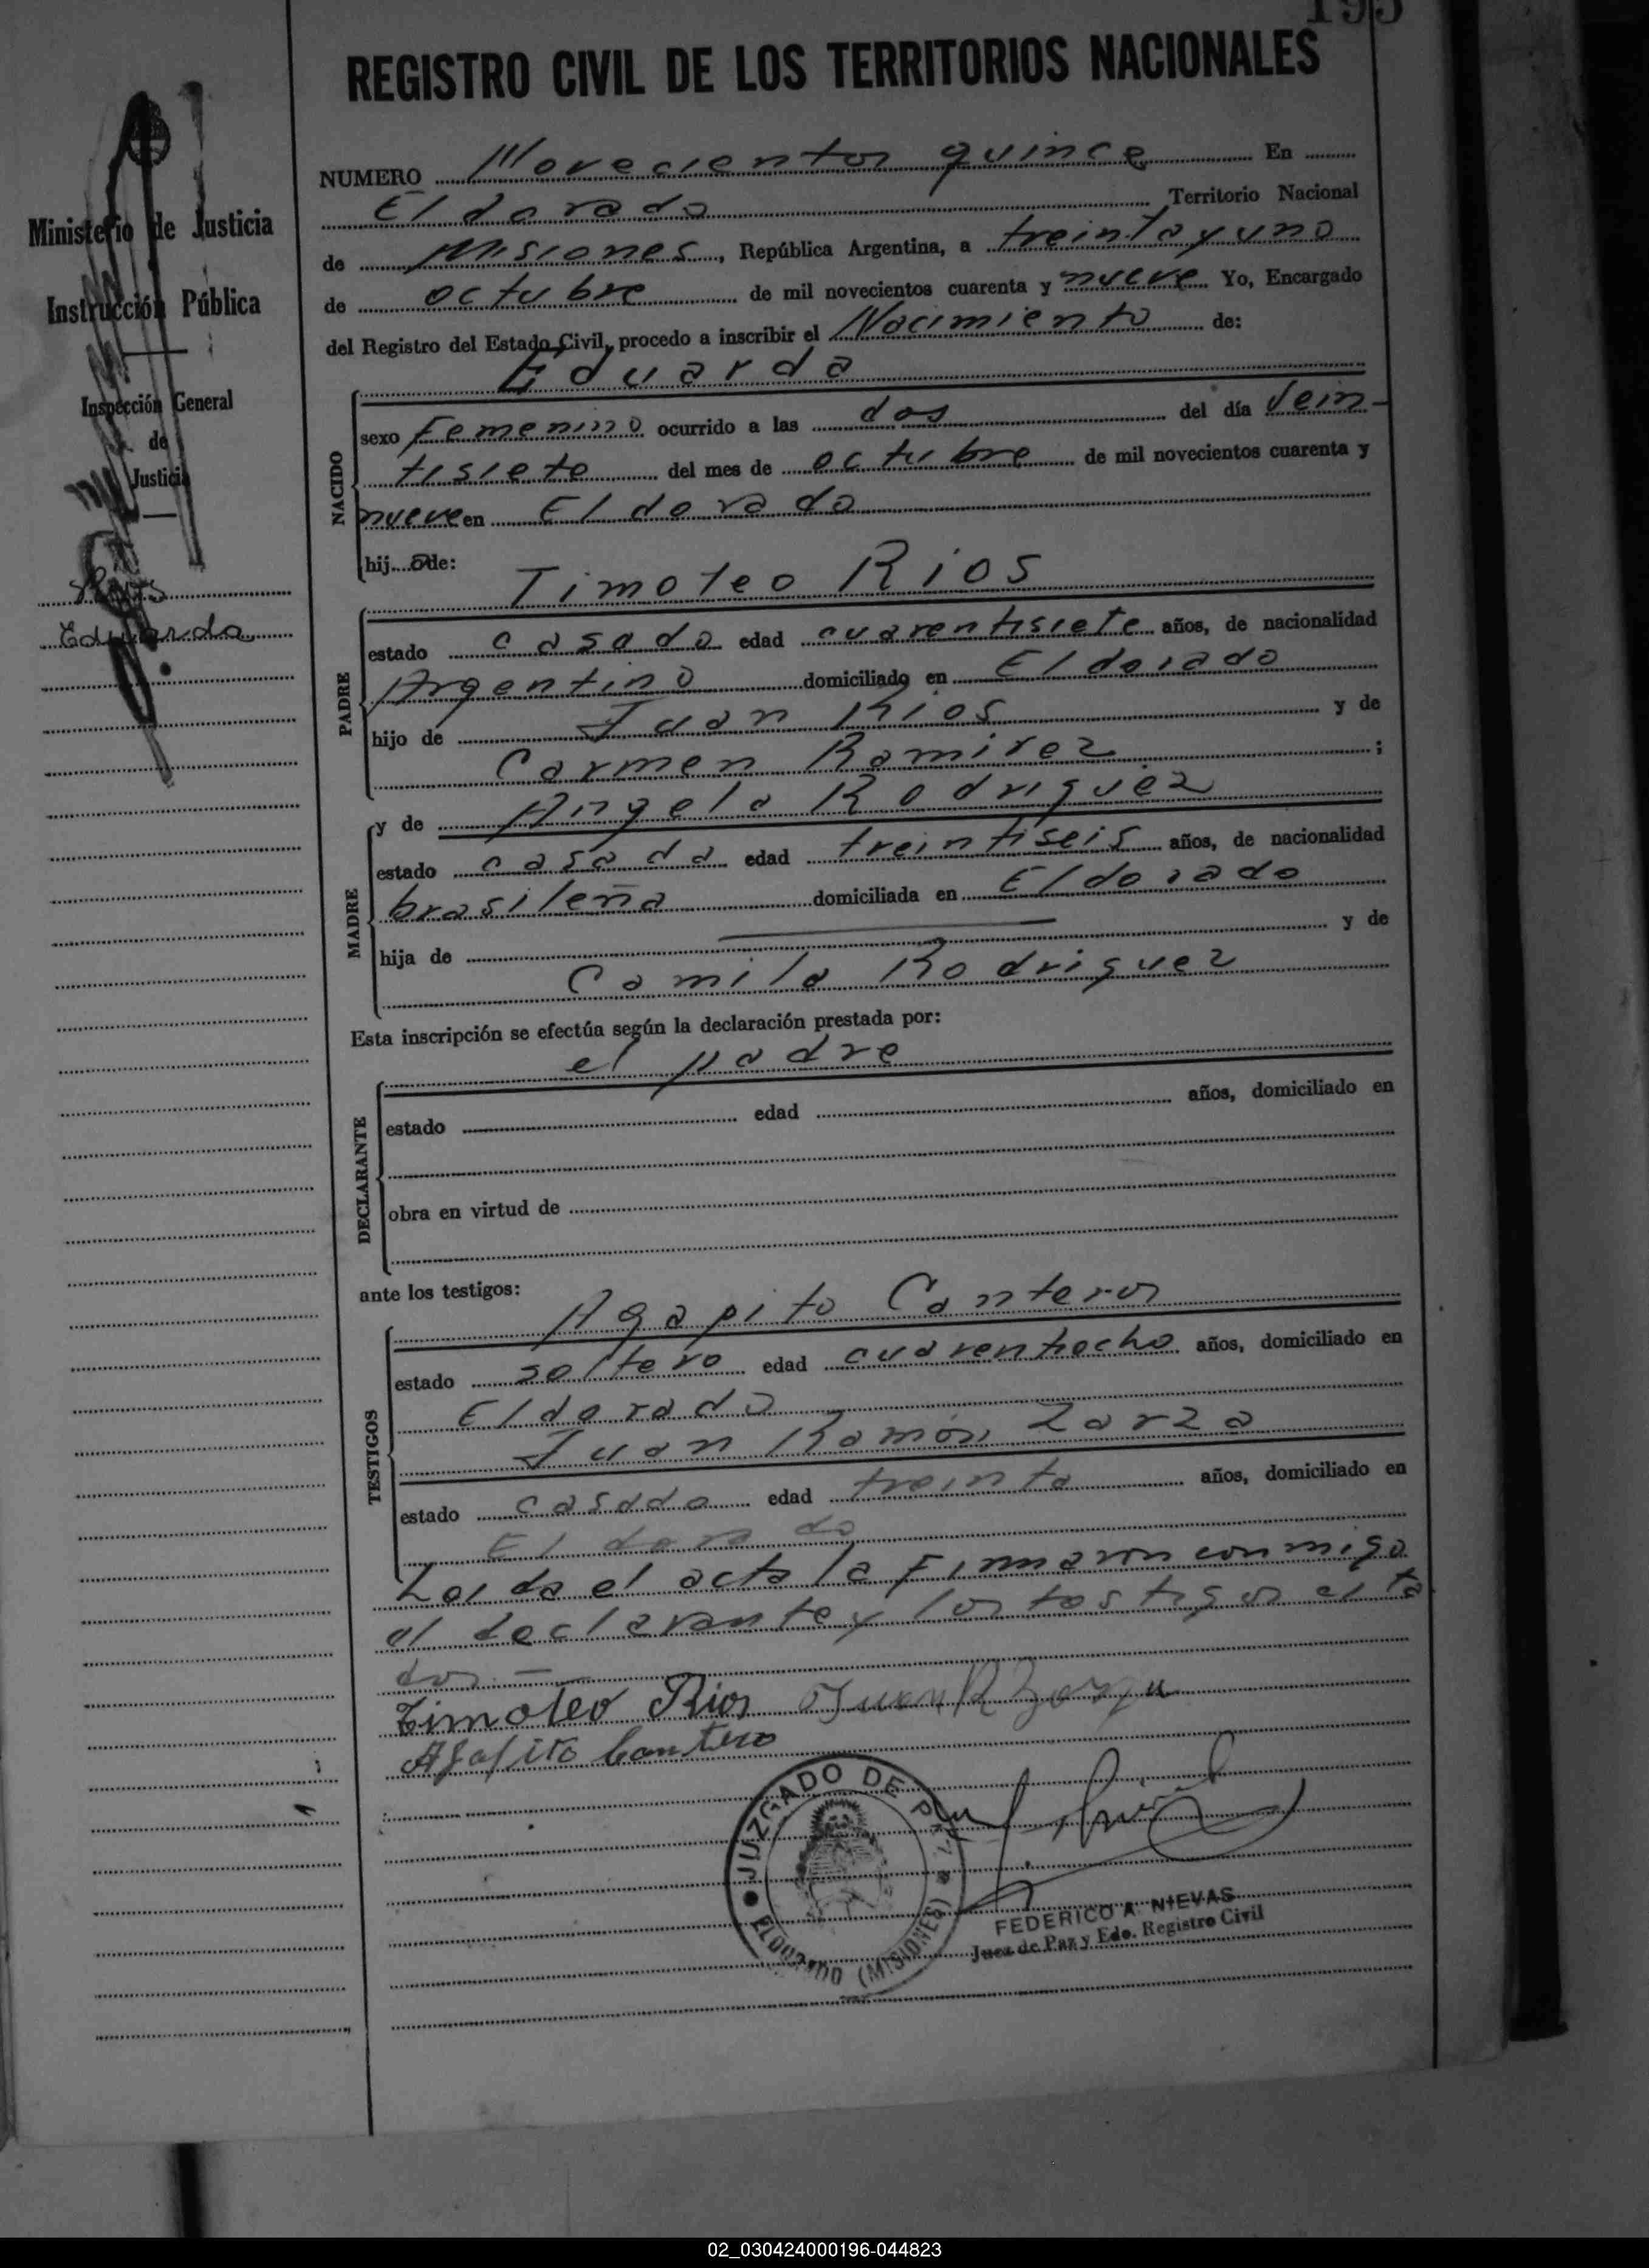 195
REGISTRO CIVIL DE LOS TERRITORIOS NACIONALES
NUMERO Novecientos quince En
Eldorado Territorio Nacional
de Misiones, República Argentina, a treinta y uno
de octubre de mil novecientos cuarenta y nueve Yo, Encargado
del Registro del Estado Civil, procedo a inscribir el Nacimiento de:
Eduarda
NACIDO
sexo Femenino ocurrido a las dos del día Vein-
tisiete del mes de octubre de mil novecientos cuarenta y
nueve en Eldorado
hij a de:
Timoteo Rios
PADRE
estado casado edad cuarentisiete años, de nacionalidad
Argentino domiciliado en Eldorado
hijo de Juan Rios y de
Carmen Ramirez ;
MADRE
y de Angela Rodriguez
estado casada edad treintiseis años, de nacionalidad
brasileña domiciliada en Eldorado
hija de — y de
Camila Rodriguez
Esta inscripción se efectúa según la declaración prestada por:
el padre
DECLARANTE
estado edad años, domiciliado en
obra en virtud de
ante los testigos:
Agapito Canteros
TESTIGOS
estado soltero edad cuarentiocho años, domiciliado en
Eldorado
Juan Ramón Zarza
estado casado edad treinta años, domiciliado en
Eldorado
Leida el acta la Firmaron conmigo
el declarante y los testigos cita
dos —
Timoteo Rios Juan R Zarza
Agapito Cantero
JUZGADO DE PAZ
ELDORADO (MISIONES)
FEDERICO A. NIEVAS
Juez de Paz y Edo. Registro Civil
Ministerio de Justicia
Instrucción Pública
Inspección General
de
Justicia
Rios
Eduarda
02_030424000196-044823